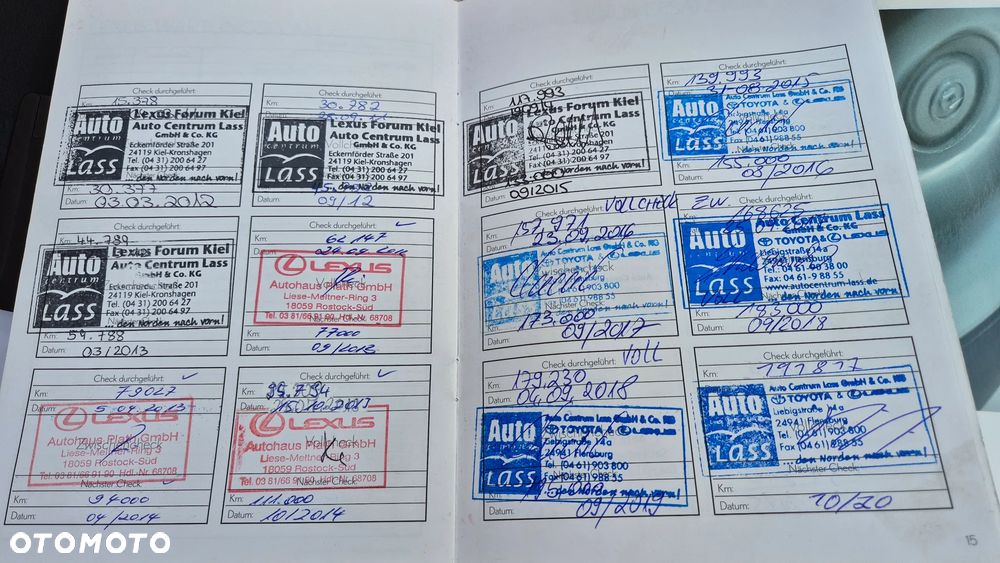 Check durchgeführt:
Km: 15.378
Auto
centrum
Lass
Lexus Forum Kiel
Auto Centrum Lass
GmbH & Co. KG
Eckernförder Straße 201
24119 Kiel-Kronshagen
Tel. (04 31) 200 64 27
Fax (04 31) 200 64 97
...den Norden nach vorn!
Km: 30.377
Datum: 03.03.2012
Check durchgeführt:
Km: 30.782
Auto
centrum
Lass
Lexus Forum Kiel
Auto Centrum Lass
GmbH & Co. KG
Eckernförder Straße 201
24119 Kiel-Kronshagen
Tel. (04 31) 200 64 27
Fax (04 31) 200 64 97
...den Norden nach vorn!
Datum: 09/12
Check durchgeführt:
Km: 44.789
Auto
centrum
Lass
Lexus Forum Kiel
Auto Centrum Lass
GmbH & Co. KG
Eckernförder Straße 201
24119 Kiel-Kronshagen
Tel. (04 31) 200 64 27
Fax (04 31) 200 64 97
...den Norden nach vorn!
Km: 59.788
Datum: 03/2013
Check durchgeführt: ✓
Km: 62 147
LEXUS
Autohaus Plath GmbH
Liese-Meitner-Ring 3
18059 Rostock-Süd
Tel. 03 81/66 91 90 Hdl.-Nr. 68708
Nächster Check:
Km: 77000
Datum:
Check durchgeführt: ✓
Km: 79027
Datum: 5.09.2013
LEXUS
Autohaus Plath GmbH
Zwischencheck
Liese-Meitner-Ring 3
18059 Rostock-Süd
Tel. 03 81/66 91 90 Hdl.-Nr. 68708
Nächster Check:
Km: 94000
Datum: 04/2014
Check durchgeführt: ✓
Km:
Datum: 15.10.2013
LEXUS
Autohaus Plath GmbH
Liese-Meitner-Ring 3
18059 Rostock-Süd
Tel. 03 81/66 91 90 Hdl.-Nr. 68708
Nächster Check:
Km: 111.000
Datum: 10/2014
Check durchgeführt:
Km: 117.993
Auto
centrum
Lass
Lexus Forum Kiel
Auto Centrum Lass
GmbH & Co. KG
Straße 201
Kiel-Kronshagen
200 64 27
Fax (04 31) 200 64 97
...den Norden nach vorn!
Datum: 09/2015
Check durchgeführt:
Km: 139.993
31.08.2015
Auto
centrum
Lass
Auto Centrum Lass GmbH & Co. KG
TOYOTA & LEXUS
...den Norden nach vorn!
Km: 155.000
Datum: 08/2016
Check durchgeführt: VOLLCHECK
Km:
Datum: 23.09.2016
Auto
centrum
Lass
Auto Centrum Lass GmbH & Co. KG
TOYOTA & LEXUS
...den Norden nach vorn!
Km: 173.000
Datum: 09/2017
Check durchgeführt: ZW.
Km: 168625
Auto
centrum
Lass
Auto Centrum Lass
GmbH & Co. KG
TOYOTA & LEXUS
Liebigstraße 14a
24941 Flensburg
Tel.: 04 61-90 38 00
Fax: 04 61-9 88 55
www.autocentrum-lass.de
...den Norden nach vorn!
Km: 183.000
Datum: 09/2018
Check durchgeführt: VOLL
Km: 179.230
Datum: 04.09.2018
Auto
centrum
Lass
Auto Centrum Lass GmbH & Co. KG
TOYOTA & LEXUS
Liebigstraße 14a
24941 Flensburg
Tel. (04 61) 903 800
Fax (04 61) 988 55
...den Norden nach vorn!
Km:
Datum: 09/2019
Check durchgeführt:
Km:
Auto
centrum
Lass
Auto Centrum Lass GmbH & Co. KG
TOYOTA & LEXUS
Liebigstraße 14a
24941 Flensburg
Tel. (04 61) 903 800
Fax (04 61) 988 55
...den Norden nach vorn!
Nächster Check:
Km:
Datum: 10/20
15
OTOMOTO